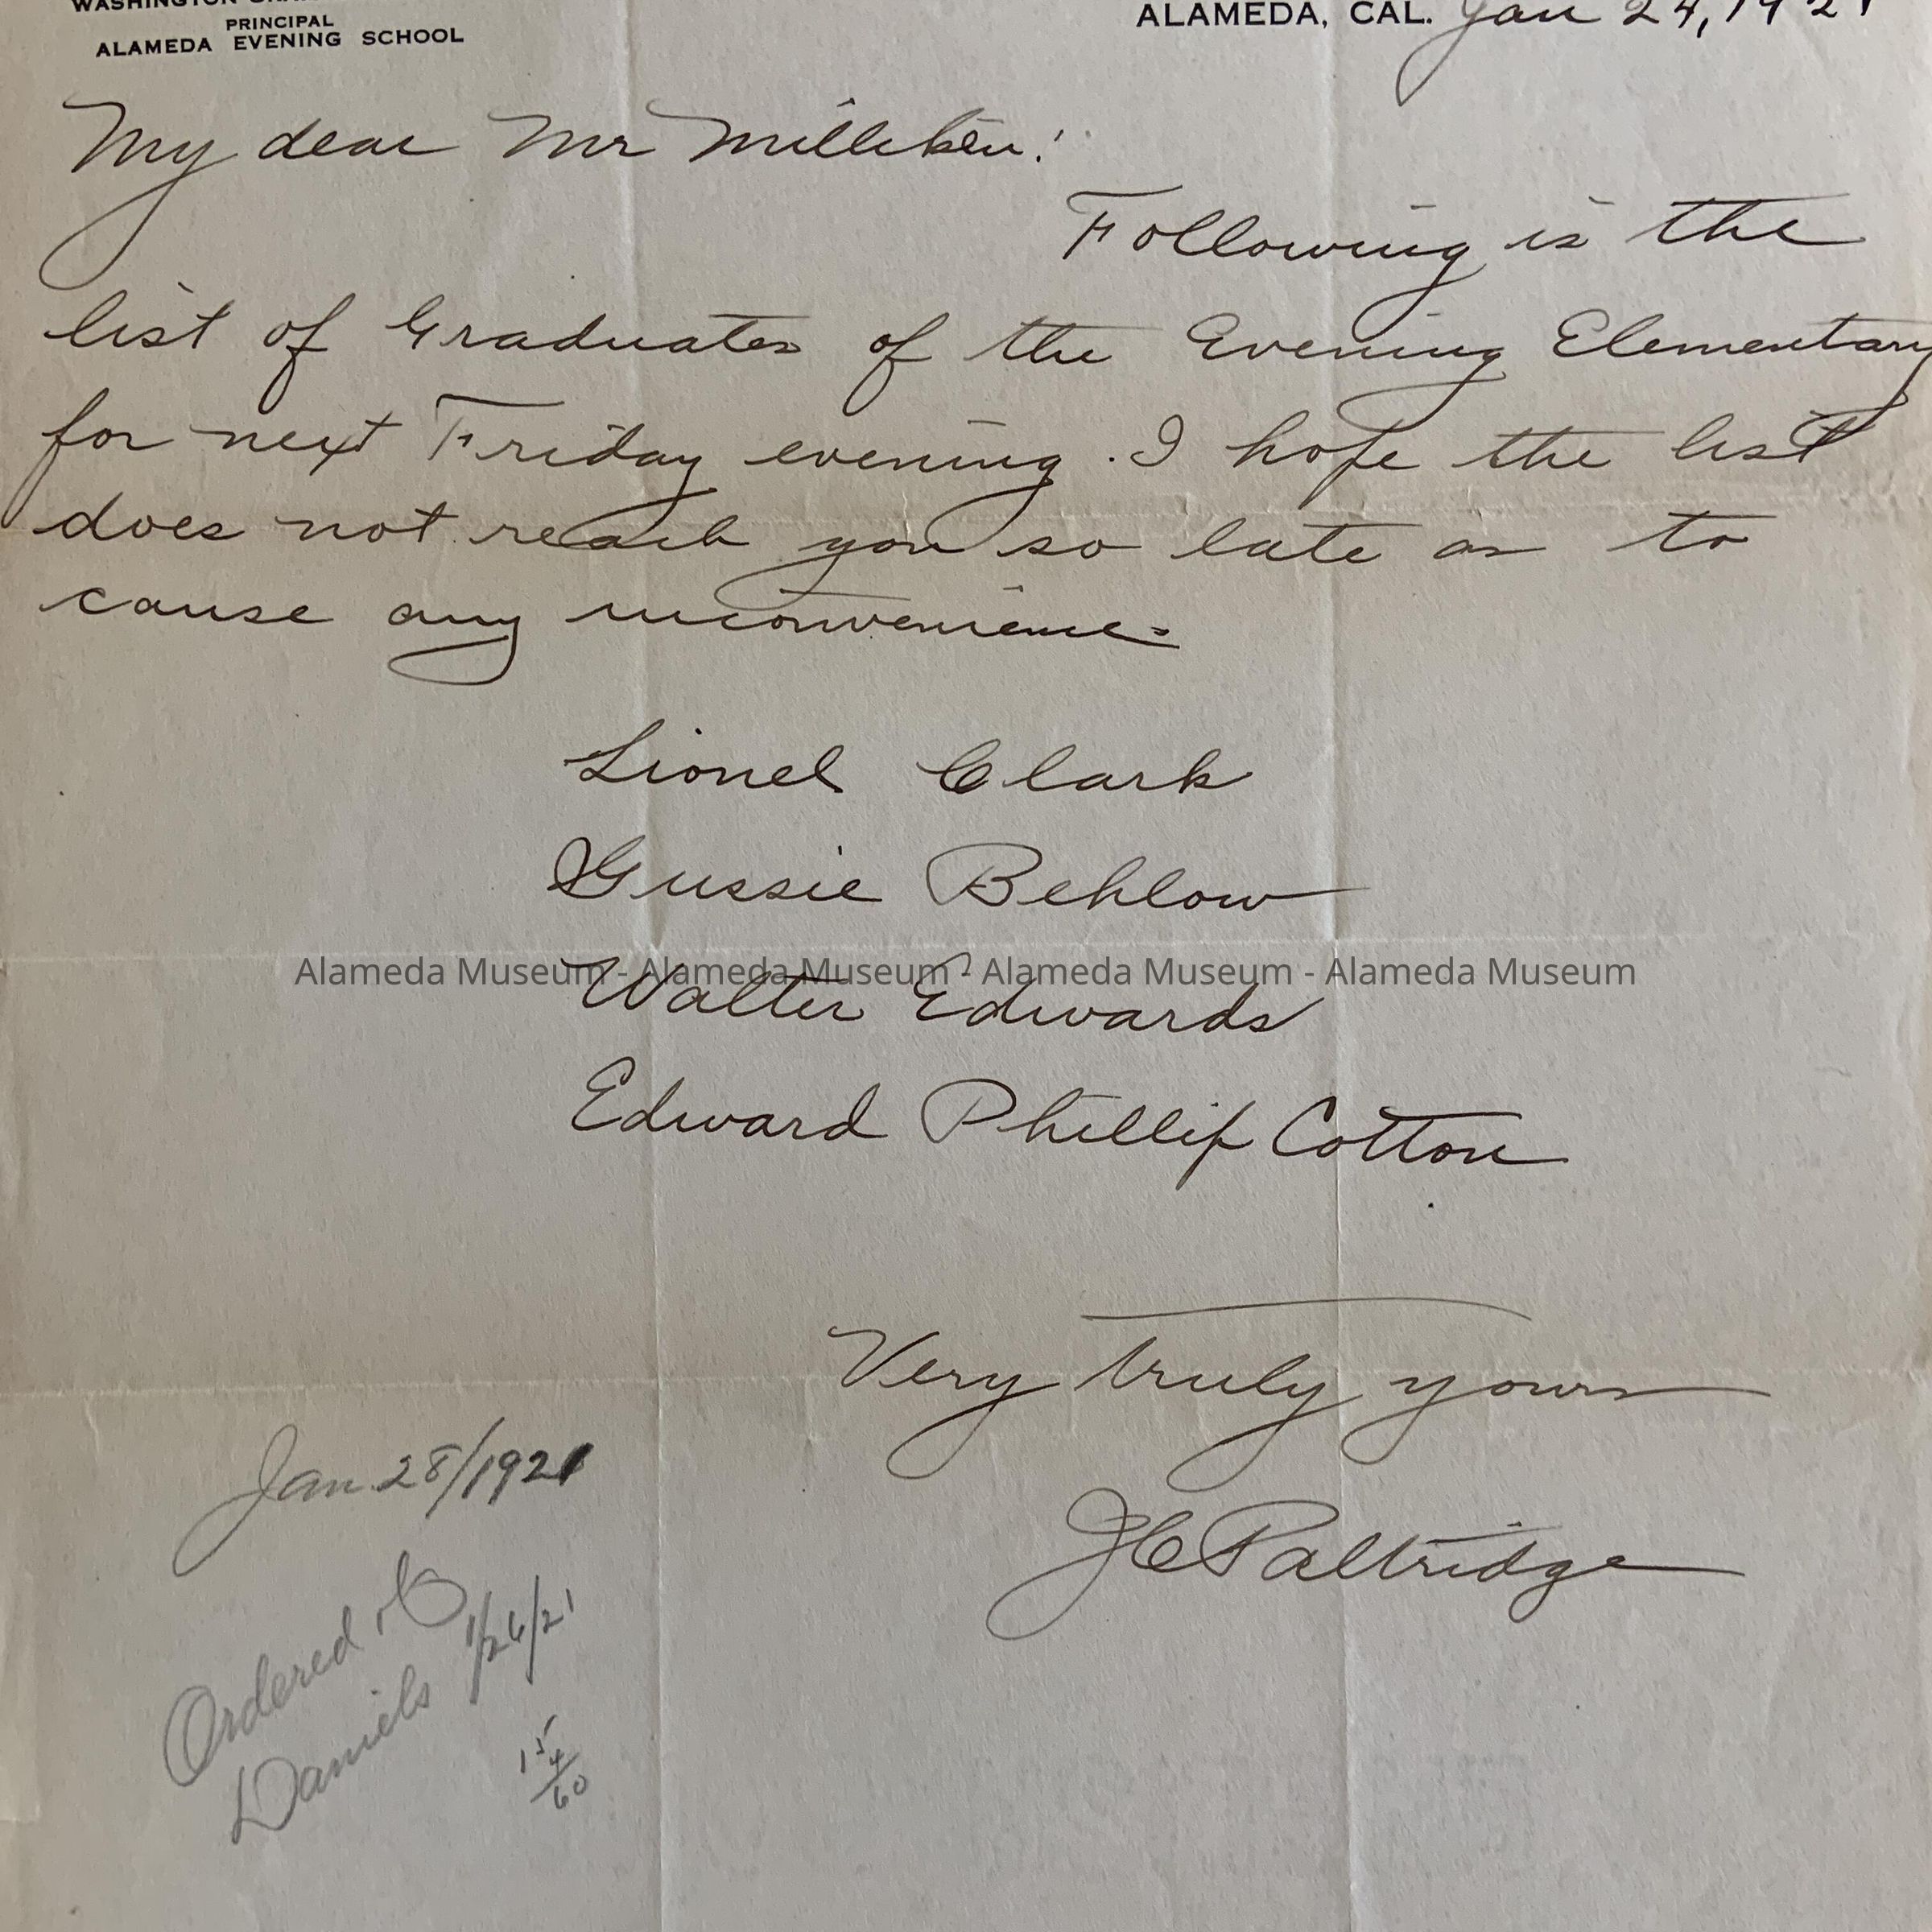 WASHINGTON
PRINCIPAL
ALAMEDA EVENING SCHOOL
ALAMEDA, CAL. Jan 24, 1921
My dear Mr Milliken:
Following is the
list of Graduates of the Evening Elementary
for next Friday evening. I hope the list
does not reach you so late as to
cause any inconvenience.
Lionel Clark
Gussie Behlow
Alameda Museum - Alameda Museum - Alameda Museum - Alameda Museum
Walter Edwards
Edward Phillip Cotton
Very truly yours
J C Paltridge
Jan 28/1921
Ordered
Daniels 1/26/21
15
4
60